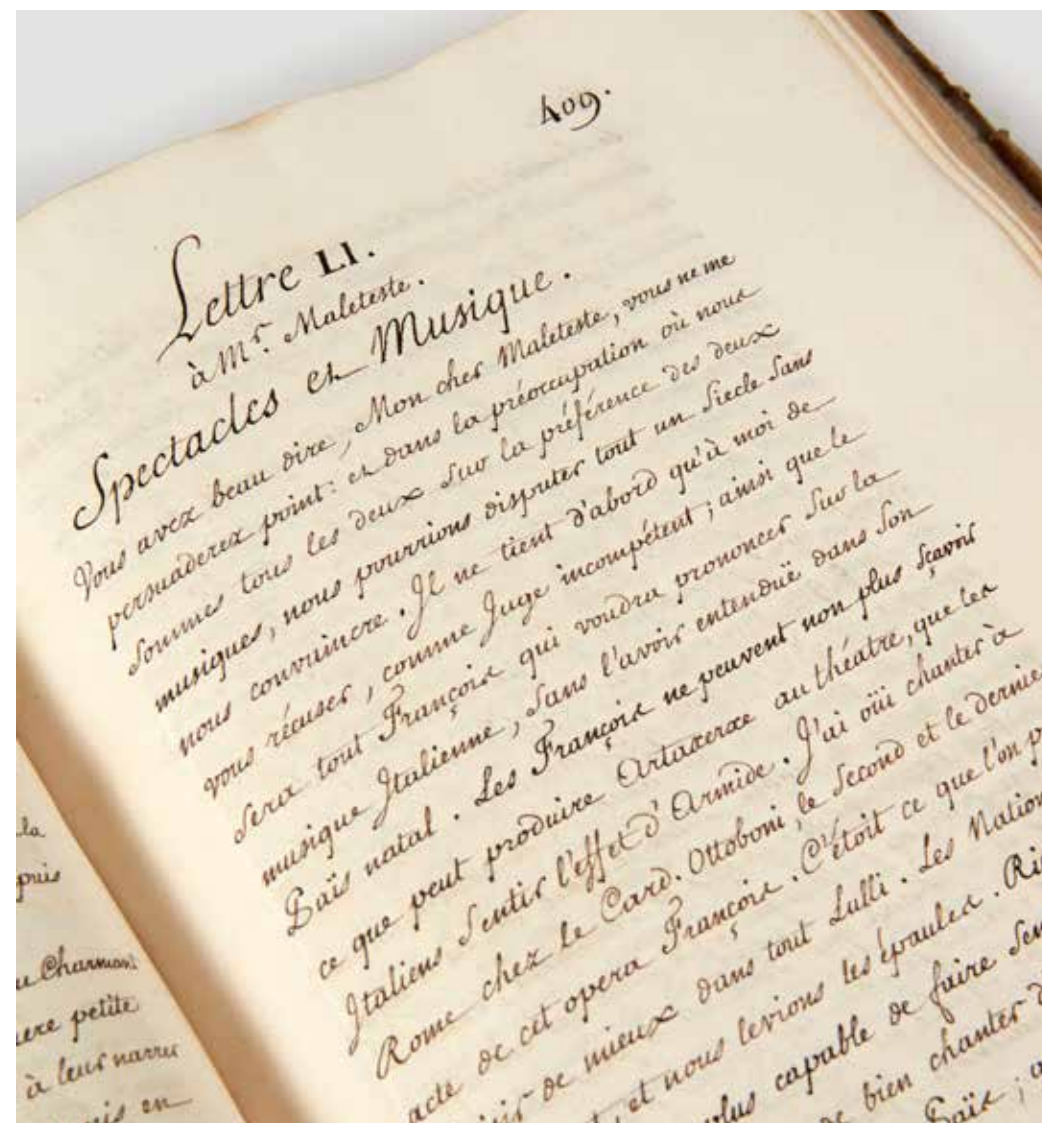 la
puis
Charmant
petite
à leur narrer
en
409.
Lettre LI.
à Mr. Maleteste.
Spectacles et Musique.
Vous avez beau dire, Mon cher Maleteste, vous ne me
persuaderez point: et dans la préoccupation où nous
sommes tous les deux sur la préférence des deux
musiques, nous pourrions disputer tout un siecle sans
nous convaincre. Il ne tient d'abord qu'à moi de
vous récuser, comme Juge incompétent; ainsi que le
sera tout François qui voudra prononcer sur la
musique Italienne, sans l'avoir entenduë dans son
Païs natal. Les François ne peuvent non plus sçavoir
ce que peut produire Artaxerxe au théatre, que les
Italiens sentir l'effet d'Armide. J'ai oüi chanter à
Rome chez le Card. Ottoboni, le second et le dernier
acte de cet opera François. C'étoit ce que l'on
de mieux dans tout Lulli. Les Nation
et nous levions les épaules. Ri
plus capable de faire sen
de bien chanter
Païs; a